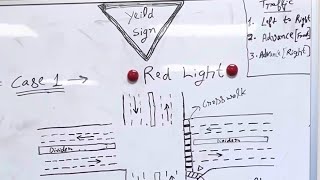 Yeild
Sign
Traffic
1. Left to Right
2. Advance [Front]
3. Advance [Right]
Case 1 →
Red Light
Crosswalk
Divider
Divider